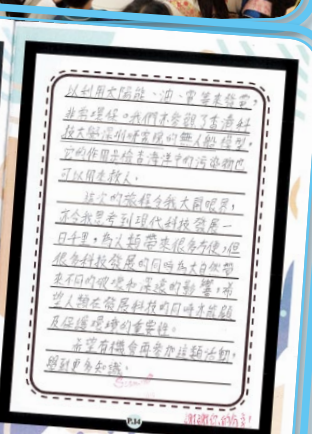 以利用太陽能、油、電等來發電，
非常環保。我們亦參觀了香港科
技大學深圳研究院的無人船模型，
它的作用是檢查海洋中的污染物也
可以用來救人。
這次的旅程令我大開眼界，
亦令我思考到現代科技發展一
日千里，為人類帶來很多方便，但
很多科技發展的同時為大自然帶
來不同的破壞和深遠的影響，希
望人類在發展科技的同時才能顧
及保護環境的重要性。
希望有機會再參加這類活動，
學到更多知識。
P.14
謝謝你的分享！